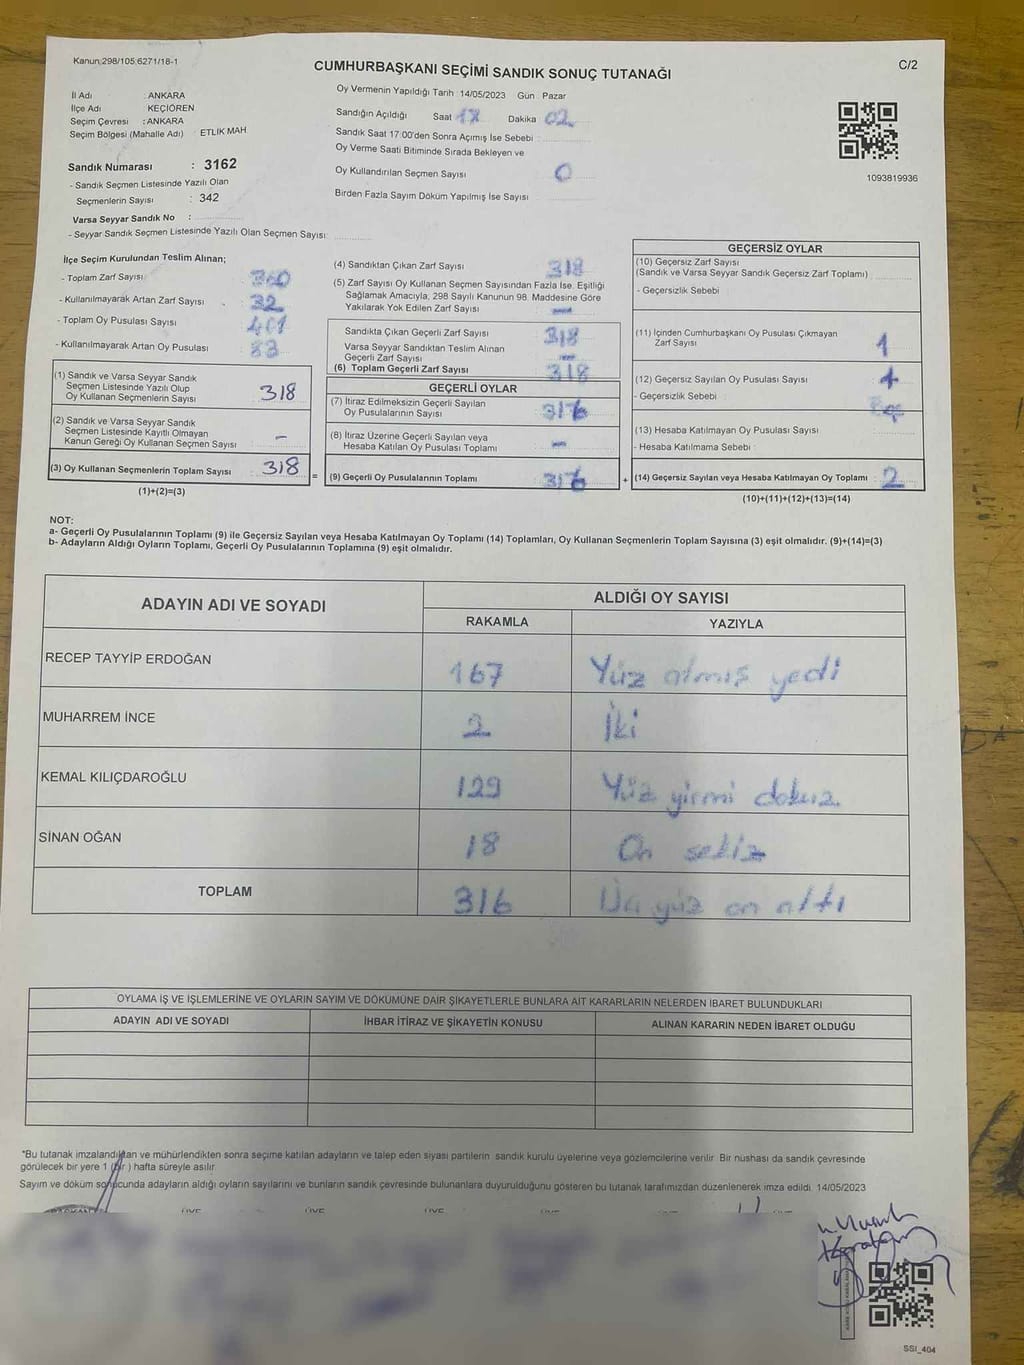 Kanun:298/105;6271/18-1
C/2
CUMHURBAŞKANI SEÇİMİ SANDIK SONUÇ TUTANAĞI
İl Adı : ANKARA
İlçe Adı : KEÇİÖREN
Seçim Çevresi : ANKARA
Seçim Bölgesi (Mahalle Adı) : ETLİK MAH
Sandık Numarası : 3162
- Sandık Seçmen Listesinde Yazılı Olan
Seçmenlerin Sayısı : 342
Varsa Seyyar Sandık No :
- Seyyar Sandık Seçmen Listesinde Yazılı Olan Seçmen Sayısı:
Oy Vermenin Yapıldığı Tarih :14/05/2023 Gün : Pazar
Sandığın Açıldığı Saat Dakika 02
Sandık Saat 17:00'den Sonra Açımış İse Sebebi
Oy Verme Saati Bitiminde Sırada Bekleyen ve
Oy Kullandırılan Seçmen Sayısı 0
Birden Fazla Sayım Döküm Yapılmış İse Sayısı
1093819936
İlçe Seçim Kurulundan Teslim Alınan;
- Toplam Zarf Sayısı
- Kullanılmayarak Artan Zarf Sayısı 32
- Toplam Oy Pusulası Sayısı
- Kullanılmayarak Artan Oy Pusulası 83
(1) Sandık ve Varsa Seyyar Sandık
Seçmen Listesinde Yazılı Olup
Oy Kullanan Seçmenlerin Sayısı 318
(2) Sandık ve Varsa Seyyar Sandık
Seçmen Listesinde Kayıtlı Olmayan
Kanun Gereği Oy Kullanan Seçmen Sayısı -
(3) Oy Kullanan Seçmenlerin Toplam Sayısı 318 =
(1)+(2)=(3)
(4) Sandıktan Çıkan Zarf Sayısı 318
(5) Zarf Sayısı Oy Kullanan Seçmen Sayısından Fazla İse, Eşitliği
Sağlamak Amacıyla, 298 Sayılı Kanunun 98. Maddesine Göre
Yakılarak Yok Edilen Zarf Sayısı -
Sandıkta Çıkan Geçerli Zarf Sayısı 318
Varsa Seyyar Sandıktan Teslim Alınan
Geçerli Zarf Sayısı -
(6) Toplam Geçerli Zarf Sayısı 318
GEÇERLİ OYLAR
(7) İtiraz Edilmeksizin Geçerli Sayılan
Oy Pusulalarının Sayısı 316
(8) İtiraz Üzerine Geçerli Sayılan veya
Hesaba Katılan Oy Pusulası Toplamı -
(9) Geçerli Oy Pusulalarının Toplamı 316 +
GEÇERSİZ OYLAR
(10) Geçersiz Zarf Sayısı
(Sandık ve Varsa Seyyar Sandık Geçersiz Zarf Toplamı)
- Geçersizlik Sebebi
(11) İçinden Cumhurbaşkanı Oy Pusulası Çıkmayan
Zarf Sayısı 1
(12) Geçersiz Sayılan Oy Pusulası Sayısı 1
- Geçersizlik Sebebi
(13) Hesaba Katılmayan Oy Pusulası Sayısı
- Hesaba Katılmama Sebebi
(14) Geçersiz Sayılan veya Hesaba Katılmayan Oy Toplamı : 2
(10)+(11)+(12)+(13)=(14)
NOT:
a- Geçerli Oy Pusulalarının Toplamı (9) ile Geçersiz Sayılan veya Hesaba Katılmayan Oy Toplamı (14) Toplamları, Oy Kullanan Seçmenlerin Toplam Sayısına (3) eşit olmalıdır. (9)+(14)=(3)
b- Adayların Aldığı Oyların Toplamı, Geçerli Oy Pusulalarının Toplamına (9) eşit olmalıdır.
ADAYIN ADI VE SOYADI ALDIĞI OY SAYISI
RAKAMLA YAZIYLA
RECEP TAYYİP ERDOĞAN 167 Yüz altmış yedi
MUHARREM İNCE 2 İki
KEMAL KILIÇDAROĞLU 129 Yüz yirmi dokuz
SİNAN OĞAN 18 On sekiz
TOPLAM 316 Üç yüz on altı
OYLAMA İŞ VE İŞLEMLERİNE VE OYLARIN SAYIM VE DÖKÜMÜNE DAİR ŞİKAYETLERLE BUNLARA AİT KARARLARIN NELERDEN İBARET BULUNDUKLARI
ADAYIN ADI VE SOYADI İHBAR İTİRAZ VE ŞİKAYETİN KONUSU ALINAN KARARIN NEDEN İBARET OLDUĞU
*Bu tutanak imzalandıktan ve mühürlendikten sonra seçime katılan adayların ve talep eden siyasi partilerin sandık kurulu üyelerine veya gözlemcilerine verilir. Bir nüshası da sandık çevresinde
görülecek bir yere 1 (bir) hafta süreyle asılır.
Sayım ve döküm sonucunda adayların aldığı oyların sayılarını ve bunların sandık çevresinde bulunanlara duyurulduğunu gösteren bu tutanak tarafımızdan düzenlenerek imza edildi. 14/05/2023
BAŞKAN ÜYE ÜYE ÜYE ÜYE ÜYE ÜYE
SSI_404